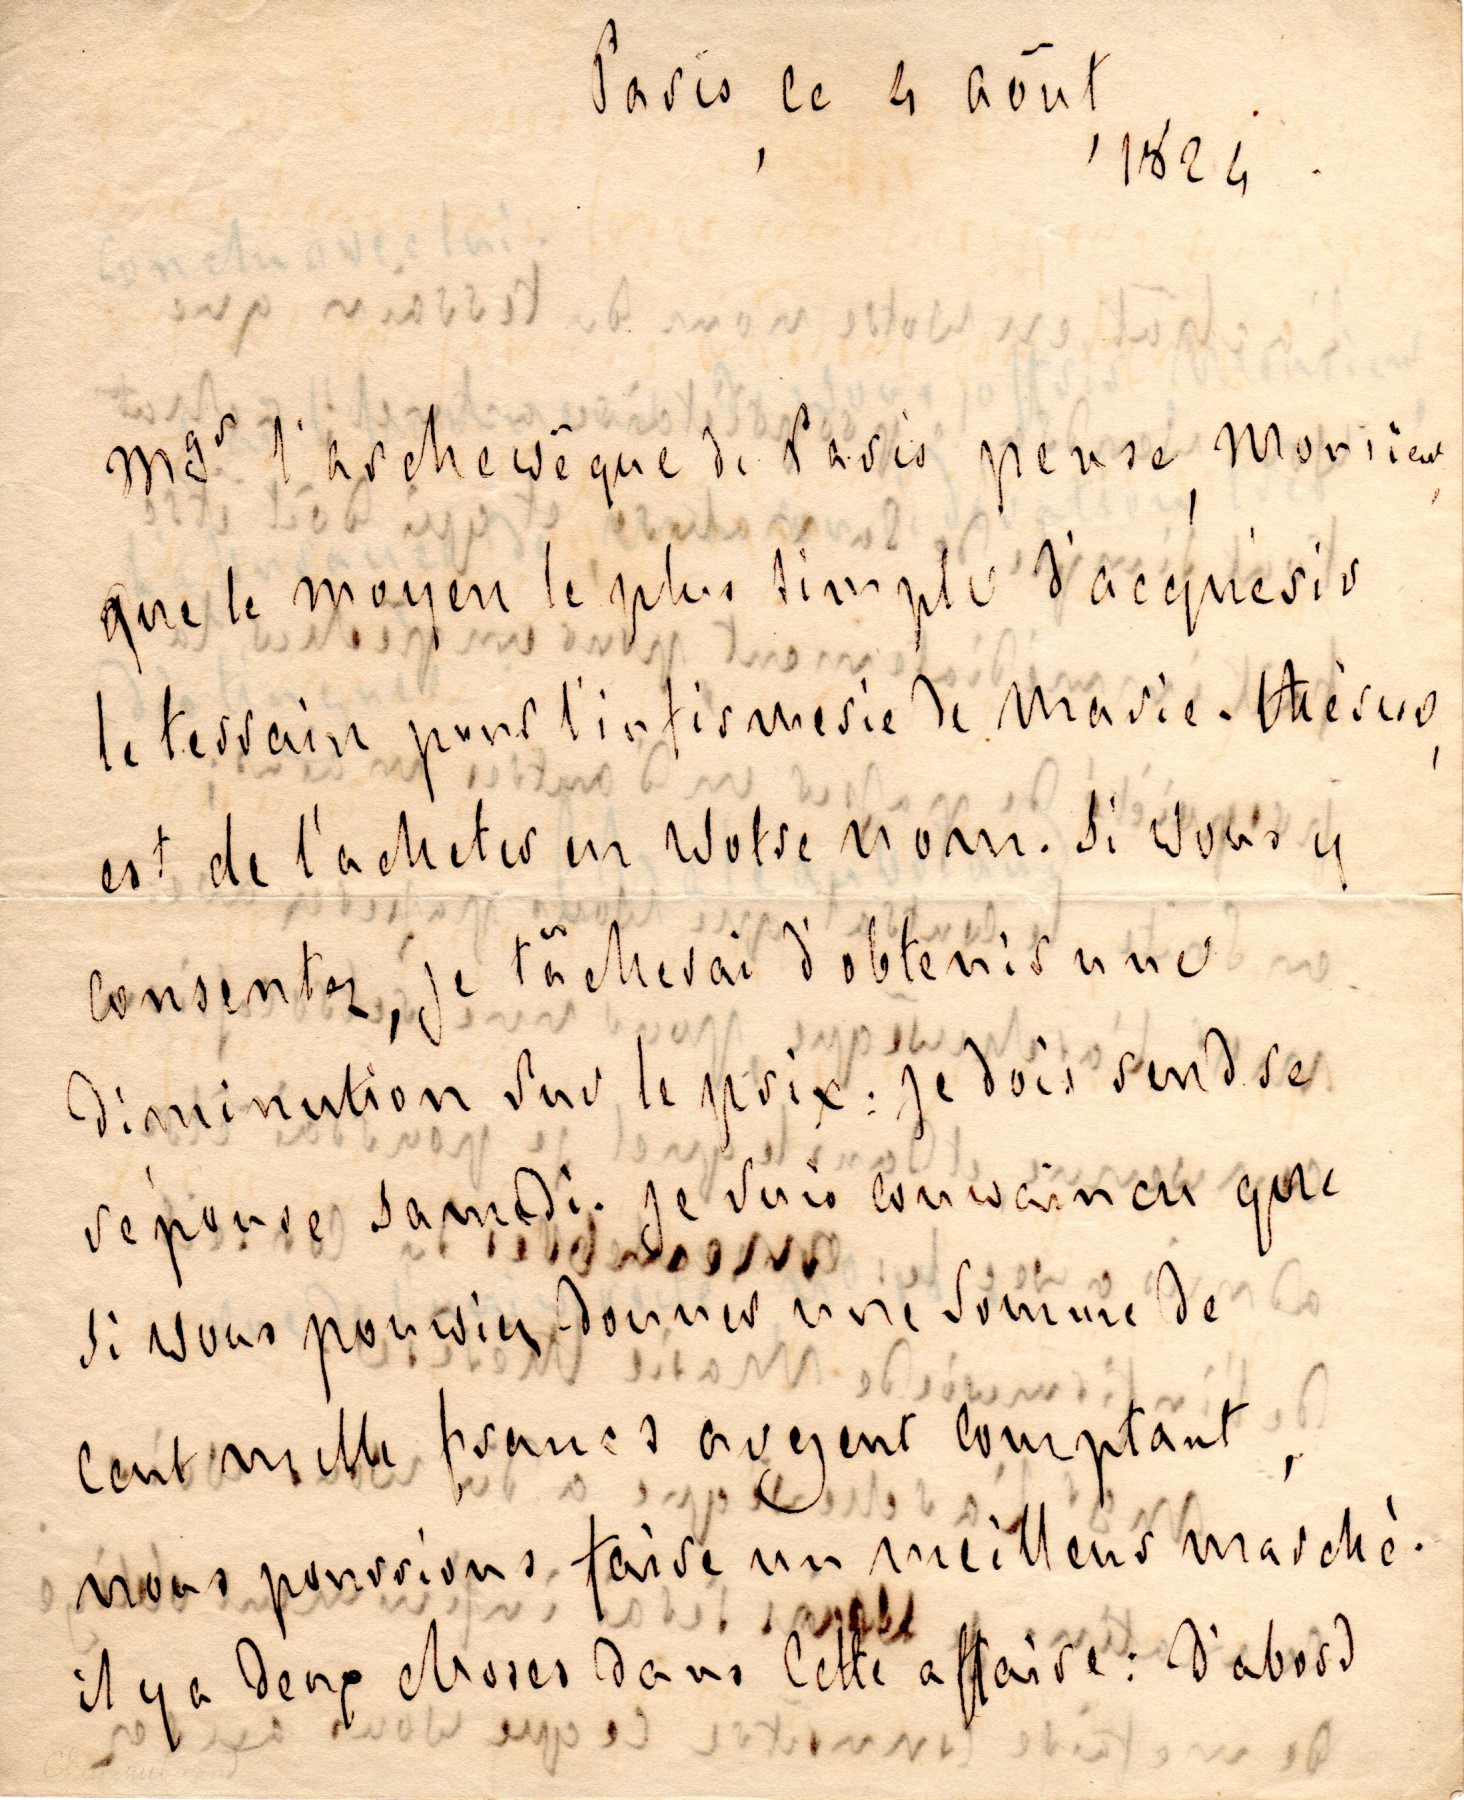 Paris, ce 4 août
, 1824.
Mgr l'archevêque de Paris pense, Monsieur,
que le moyen le plus simple d'acquérir
le terrain pour l'infirmerie de Marie-Thérèse,
est de l'acheter en votre nom. Si vous y
consentez, je tâcherai d'obtenir une
diminution sur le prix : je dois rendre
réponse samedi. Je suis convaincu que
si vous pouviez donner une somme de
cent mille francs argent comptant,
nous pourrions faire un meilleur marché.
il y a deux choses dans cette affaire : d'abord